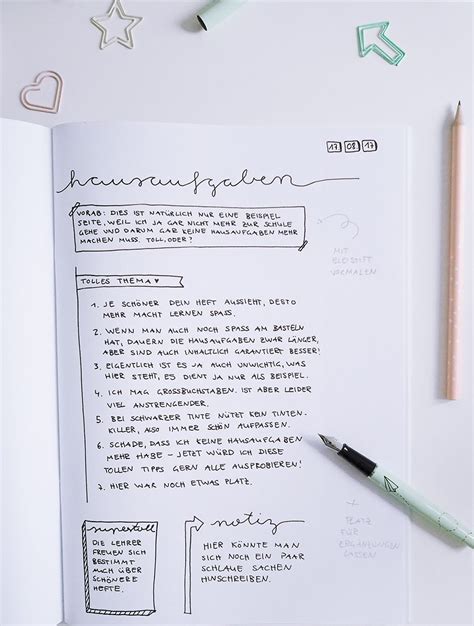 17 08 17
hausaufgaben
VORAB: DIES IST NATÜRLICH NUR EINE BEISPIEL
SEITE, WEIL ICH JA GAR NICHT MEHR ZUR SCHULE
GEHE UND DARUM GAR KEINE HAUSAUFGABEN MEHR
MACHEN MUSS. TOLL, ODER?
MIT
BLEISTIFT
VORMALEN
TOLLES THEMA ♥
1. JE SCHÖNER DEIN HEFT AUSSIEHT, DESTO
MEHR MACHT LERNEN SPASS.
2. WENN MAN AUCH NOCH SPASS AM BASTELN
HAT, DAUERN DIE HAUSAUFGABEN ZWAR LÄNGER,
ABER SIND AUCH INHALTLICH GARANTIERT BESSER!
3. EIGENTLICH IST ES JA AUCH UNWICHTIG, WAS
HIER STEHT, ES DIENT JA NUR ALS BEISPIEL.
4. ICH MAG GROSSBUCHSTABEN. IST ABER LEIDER
VIEL ANSTRENGENDER.
5. BEI SCHWARZER TINTE NÜTZT KEIN TINTEN-
KILLER, ALSO IMMER SCHÖN AUFPASSEN.
6. SCHADE, DASS ICH KEINE HAUSAUFGABEN
MEHR HABE – JETZT WÜRD ICH DIESE
TOLLEN TIPPS GERN ALLE AUSPROBIEREN!
7. HIER WAR NOCH ETWAS PLATZ.
supertoll
DIE LEHRER
FREUEN SICH
BESTIMMT
AUCH ÜBER
SCHÖNERE
HEFTE.
notiz
HIER KÖNNTE MAN
SICH NOCH EIN PAAR
SCHLAUE SACHEN
HINSCHREIBEN.
PLATZ
FÜR
ERGÄNZUNGEN
LASSEN